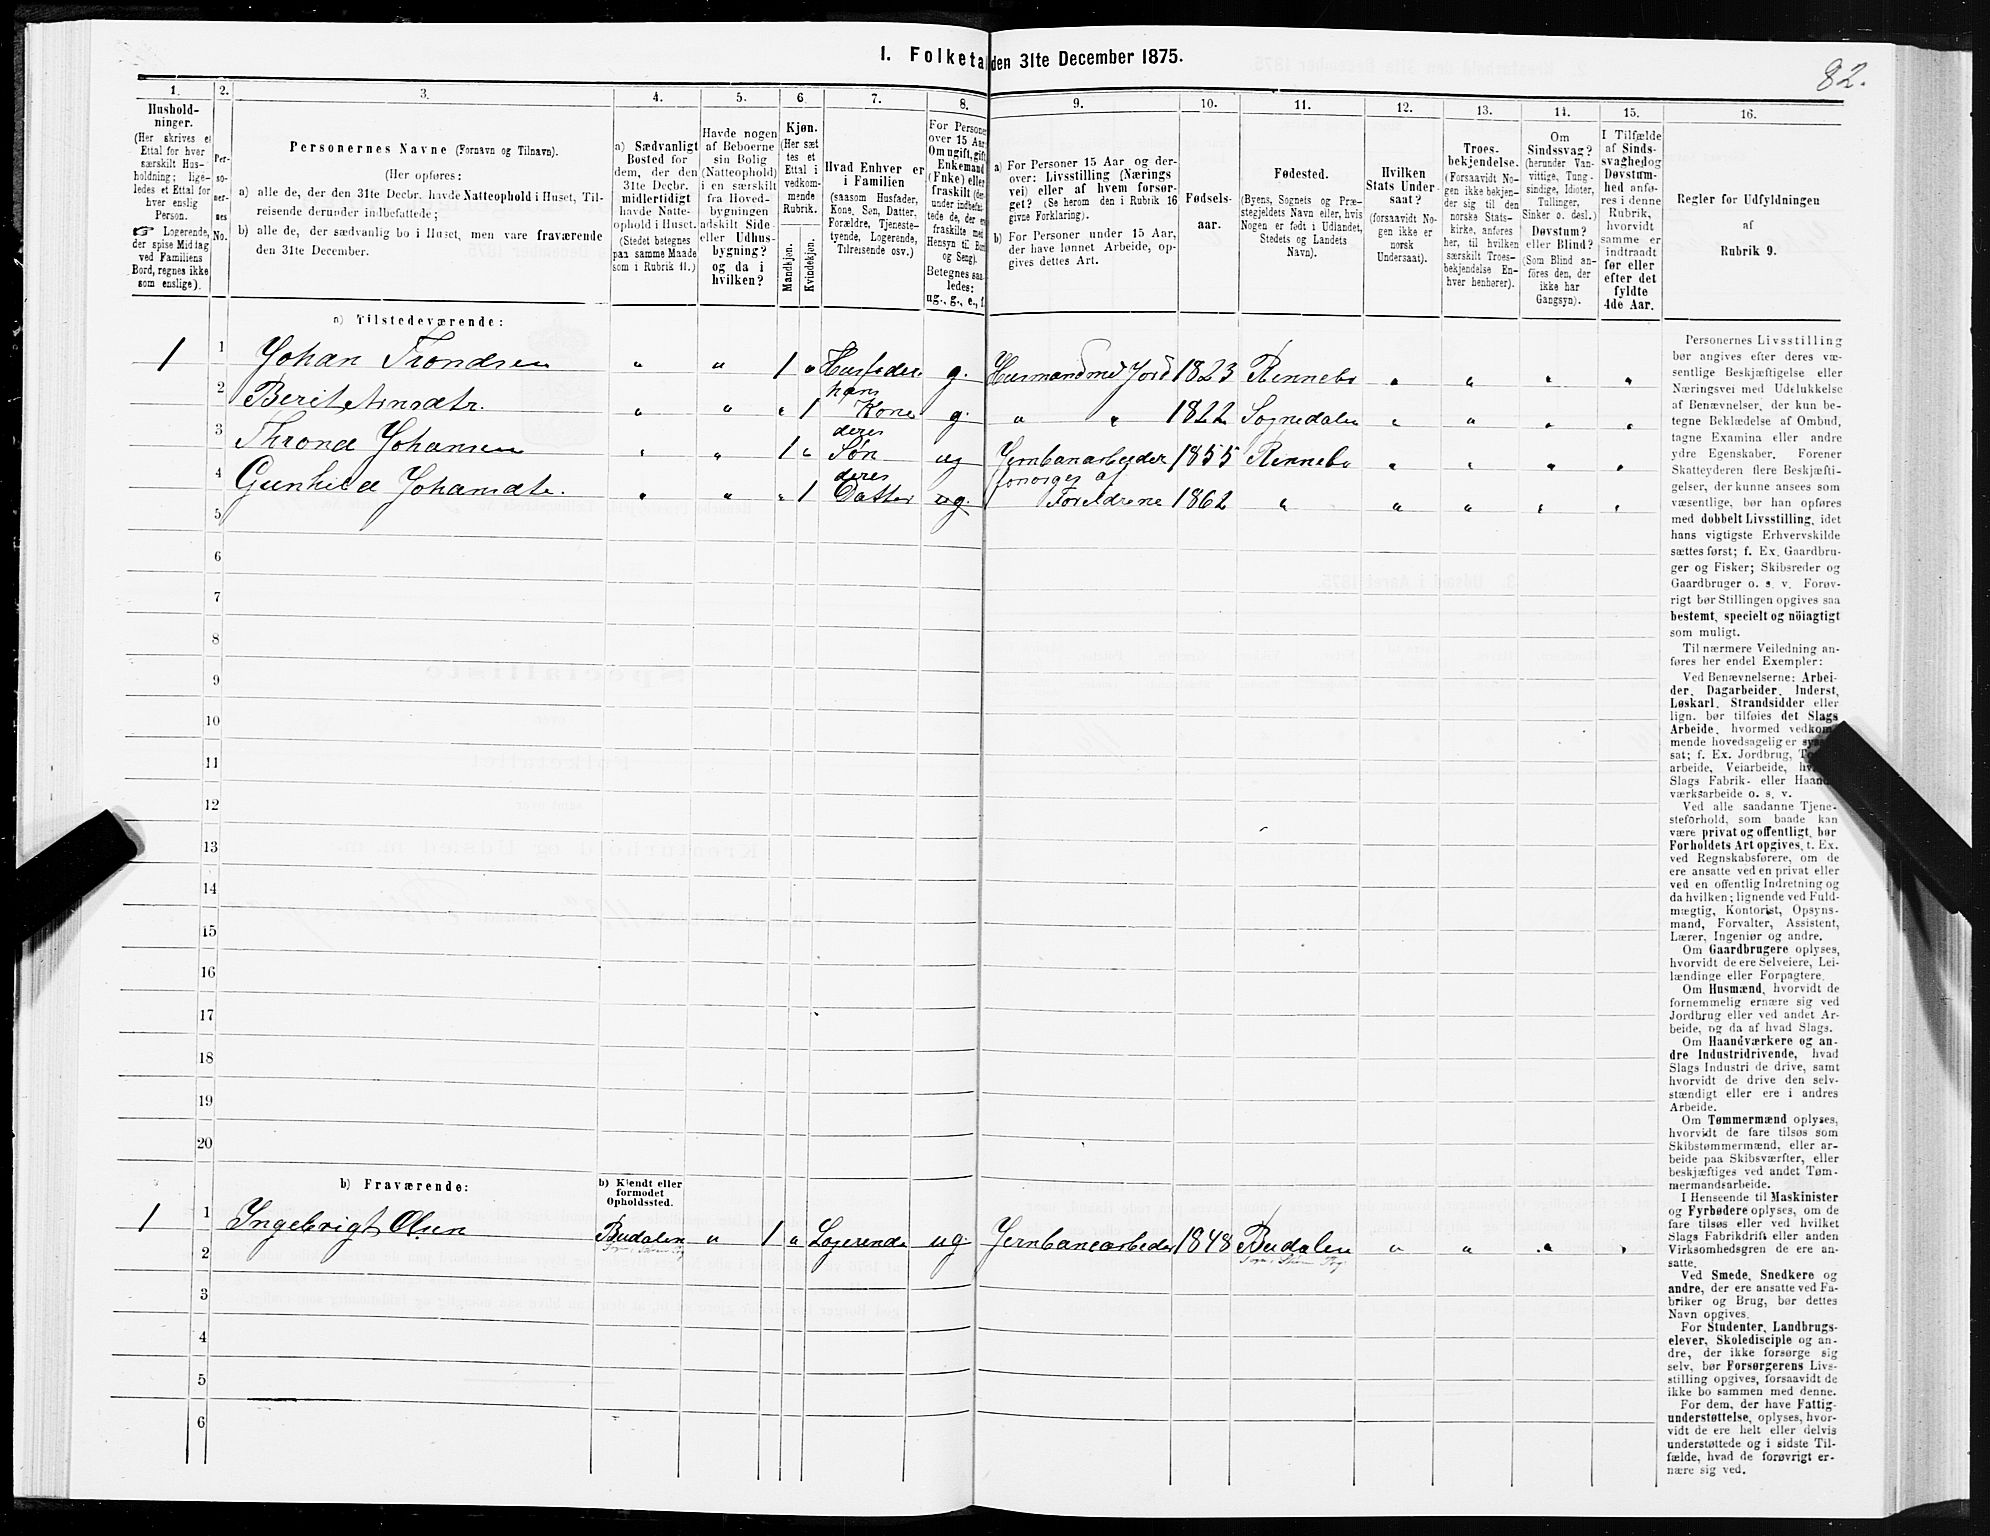 I. Folketal den 31te December 1875.
82.
1.
Hushold-
ninger.
(Her skrives et
Ettal for hver
særskilt Hus-
holdning; lige-
ledes et Ettal for
hver enslig
Person.
☞ Logerende,
der spise Middag
ved Familiens
Bord, regnes ikke
som enslige).
2.
Per-
so-
ner-
nes
No.
3.
Personernes Navne (Fornavn og Tilnavn).
(Her opføres:
a) alle de, der den 31te Decbr. havde Natteophold i Huset, Til-
reisende derunder indbefattede;
b) alle de, der sædvanlig bo i Huset, men vare fraværende
den 31te December.
4.
a) Sædvanligt
Bosted for
dem, der den
31te Decbr.
midlertidigt
havde Natte-
ophold i Huset.
(Stedet betegnes
paa samme Maade
som i Rubrik 11.)
5.
Havde nogen
af Beboerne
sin Bolig
(Natteophold)
i en særskilt
fra Hoved-
bygningen
adskilt Side-
eller Udhus-
bygning?
og da i
hvilken?
6.
Kjøn.
(Her sæt
tes et
Ettal i
vedkom-
mende
Rubrik.
Mandkjøn.
Kvindekjøn.
7.
Hvad Enhver er
i Familien
(saasom Husfader,
Kone, Søn, Datter,
Forældre, Tjeneste-
tyende, Logerende,
Tilreisende osv.)
8.
For Personer
over 15 Aar:
Om ugift, gift,
Enkemand
(Enke) eller
fraskilt (der-
under indbefat-
tede de, der ere
fraskilte med
Hensyn til Bord
og Seng).
Betegnes saa-
ledes:
ug., g., e., f.
9.
a) For Personer 15 Aar og der-
over: Livsstilling (Nærings
vei) eller af hvem forsør-
get? (Se herom den i Rubrik 16
givne Forklaring.)
b) For Personer under 15 Aar,
der have lønnet Arbeide, op-
gives dettes Art.
10.
Fødsels-
aar.
11.
Fødested.
(Byens, Sognets og Præ-
stegjeldets Navn eller, hvis
Nogen er født i Udlandet,
Stedets og Landets
Navn).
12.
Hvilken
Stats Under-
saat?
(forsaavidt No-
gen ikke er
norsk
Undersaat).
13.
Troes-
bekjendelse.
(Forsaavidt No-
gen ikke bekjen-
der sig til den
norske Stats-
kirke, anføres
her, til hvilken
særskilt Troes-
bekjendelse En-
hver henhører).
14.
Om
Sindssvag?
(herunder Van-
vittige, Tung-
sindige, Idioter,
Tullinger,
Sinker o. desl.)
Døvstum?
eller Blind?
(Som Blind an-
føres den, der
ikke har
Gangsyn).
15.
I Tilfælde
af Sinds-
svaghed og
Døvstum-
hed anfø-
res i denne
Rubrik,
hvorvidt
samme er
indtraadt
før eller
efter det
fyldte
4de Aar.
16.
Regler for Udfyldningen
af
Rubrik 9.
a) Tilstedeværende:
1 1 Johan Trondsen " " 1 " Husfader g. Husmand med Jord 1823 Rennebo " " " "
2 Berit Arnsdtr. " " " 1 hans Kone g. " " 1822 Sognedalen " " " "
3 Thrond Johansen " " 1 " deres Søn ug Jernbanarbejder 1855 Rennebo " " " "
4 Gunhild Johansdtr. " " " 1 deres Datter ug. forsørges af Foreldrene 1862 " " " " "
5
6
7
8
9
10
11
12
13
14
15
16
17
18
19
20
b) Fraværende:
b) Kjendt eller
formodet
Opholdssted.
1 1 Ingebrigt Olsen Budalen " 1 " Logerende ug. Jernbanearbeder 1848 Budalen " " " "
2
3
4
5
6
Personernes Livsstilling
bør angives efter deres væ-
sentlige Beskjæftigelse eller
Næringsvei med Udelukkelse
af Benævnelser, der kun be-
tegne Beklædelse af Ombud,
tagne Examina eller andre
ydre Egenskaber. Forener
Skatteyderen flere Beskjæfti-
gelser, der kunne ansees som
væsentlige, bør han opføres
med dobbelt Livsstilling, idet
hans vigtigste Erhvervskilde
sættes først; f. Ex. Gaardbru-
ger og Fisker; Skibsreder og
Gaardbruger o. s. v. Forøv-
rigt bør Stillingen opgives saa
bestemt, specielt og nöiagtigt
som muligt.
Til nærmere Veiledning an-
føres her endel Exempler:
Ved Benævnelserne: Arbei-
der, Dagarbeider, Inderst,
Løskarl, Strandsidder eller
lign. bør tilføies det Slags
Arbeide, hvormed vedkom-
mende hovedsagelig er syssel-
sat; f. Ex. Jordbrug, Tomte-
arbeide, Veiarbeide, hvad
Slags Fabrik- eller Haand-
værksarbeide o. s. v.
Ved alle saadanne Tjene-
steforhold, som baade kan
være privat og offentligt, bør
Forholdets Art opgives, t. Ex.
ved Regnskabsførere, om de
ere ansatte ved en privat eller
ved en offentlig Indretning og
da hvilken; lignende ved Fuld-
mægtig, Kontorist, Opsyns-
mand, Forvalter, Assistent,
Lærer, Ingeniør og andre.
Om Gaardbrugere oplyses,
hvorvidt de ere Selveiere, Lei-
lændinge eller Forpagtere.
Om Husmænd, hvorvidt de
fornemmelig ernære sig ved
Jordbrug eller ved andet Ar-
beide, og da af hvad Slags.
Om Haandværkere og an-
dre Industridrivende, hvad
Slags Industri de drive, samt
hvorvidt de drive den selv-
stændigt eller ere i andres
Arbeide.
Om Tømmermænd oplyses,
hvorvidt de fare tilsøs som
Skibstømmermænd, eller ar-
beide paa Skibsværfter, eller
beskjæftiges ved andet Tøm-
mermandsarbeide.
I Henseende til Maskinister
og Fyrbødere oplyses, om de
fare tilsøs eller ved hvilket
Slags Fabrikdrift eller anden
Virksomhedsgren de ere an-
satte.
Ved Smede, Snedkere og
andre, der ere ansatte ved Fa-
briker og Brug, bør dettes
Navn opgives.
For Studenter, Landbrugs-
elever, Skoledisciple og an-
dre, der ikke forsørge sig
selv, bør Forsørgerens Livs-
stilling opgives, forsaavidt de
ikke bo sammen med denne.
For dem, der have Fattig-
understøttelse, oplyses, hvor-
vidt de ere helt eller delvis
understøttede og i sidste Til-
fælde, hvad de forøvrigt er-
nære sig ved.